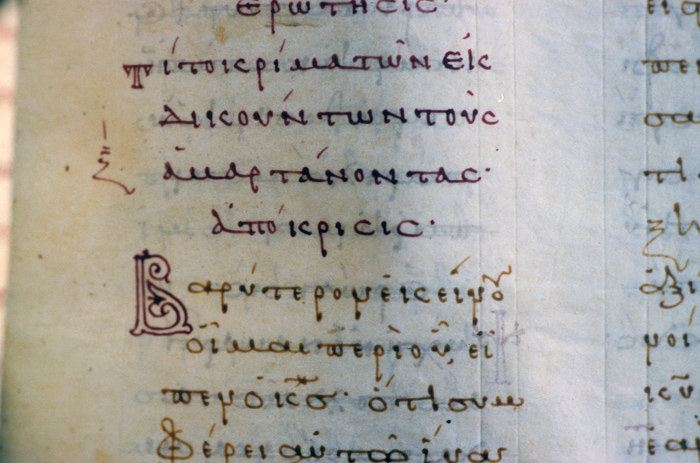 ἐρώτησις·
Τί τὸ κρίμα τῶν ἐκ
δικούντων τοὺς
ἁμαρτάνοντας·
ἀπόκρισις·
Βαρύτερον ἐκείνου
οἶμαι περὶ οὗ, εἶ
πεν ὁ κς· ὅτι συμ
φέρει αὐτῷ ἵνα